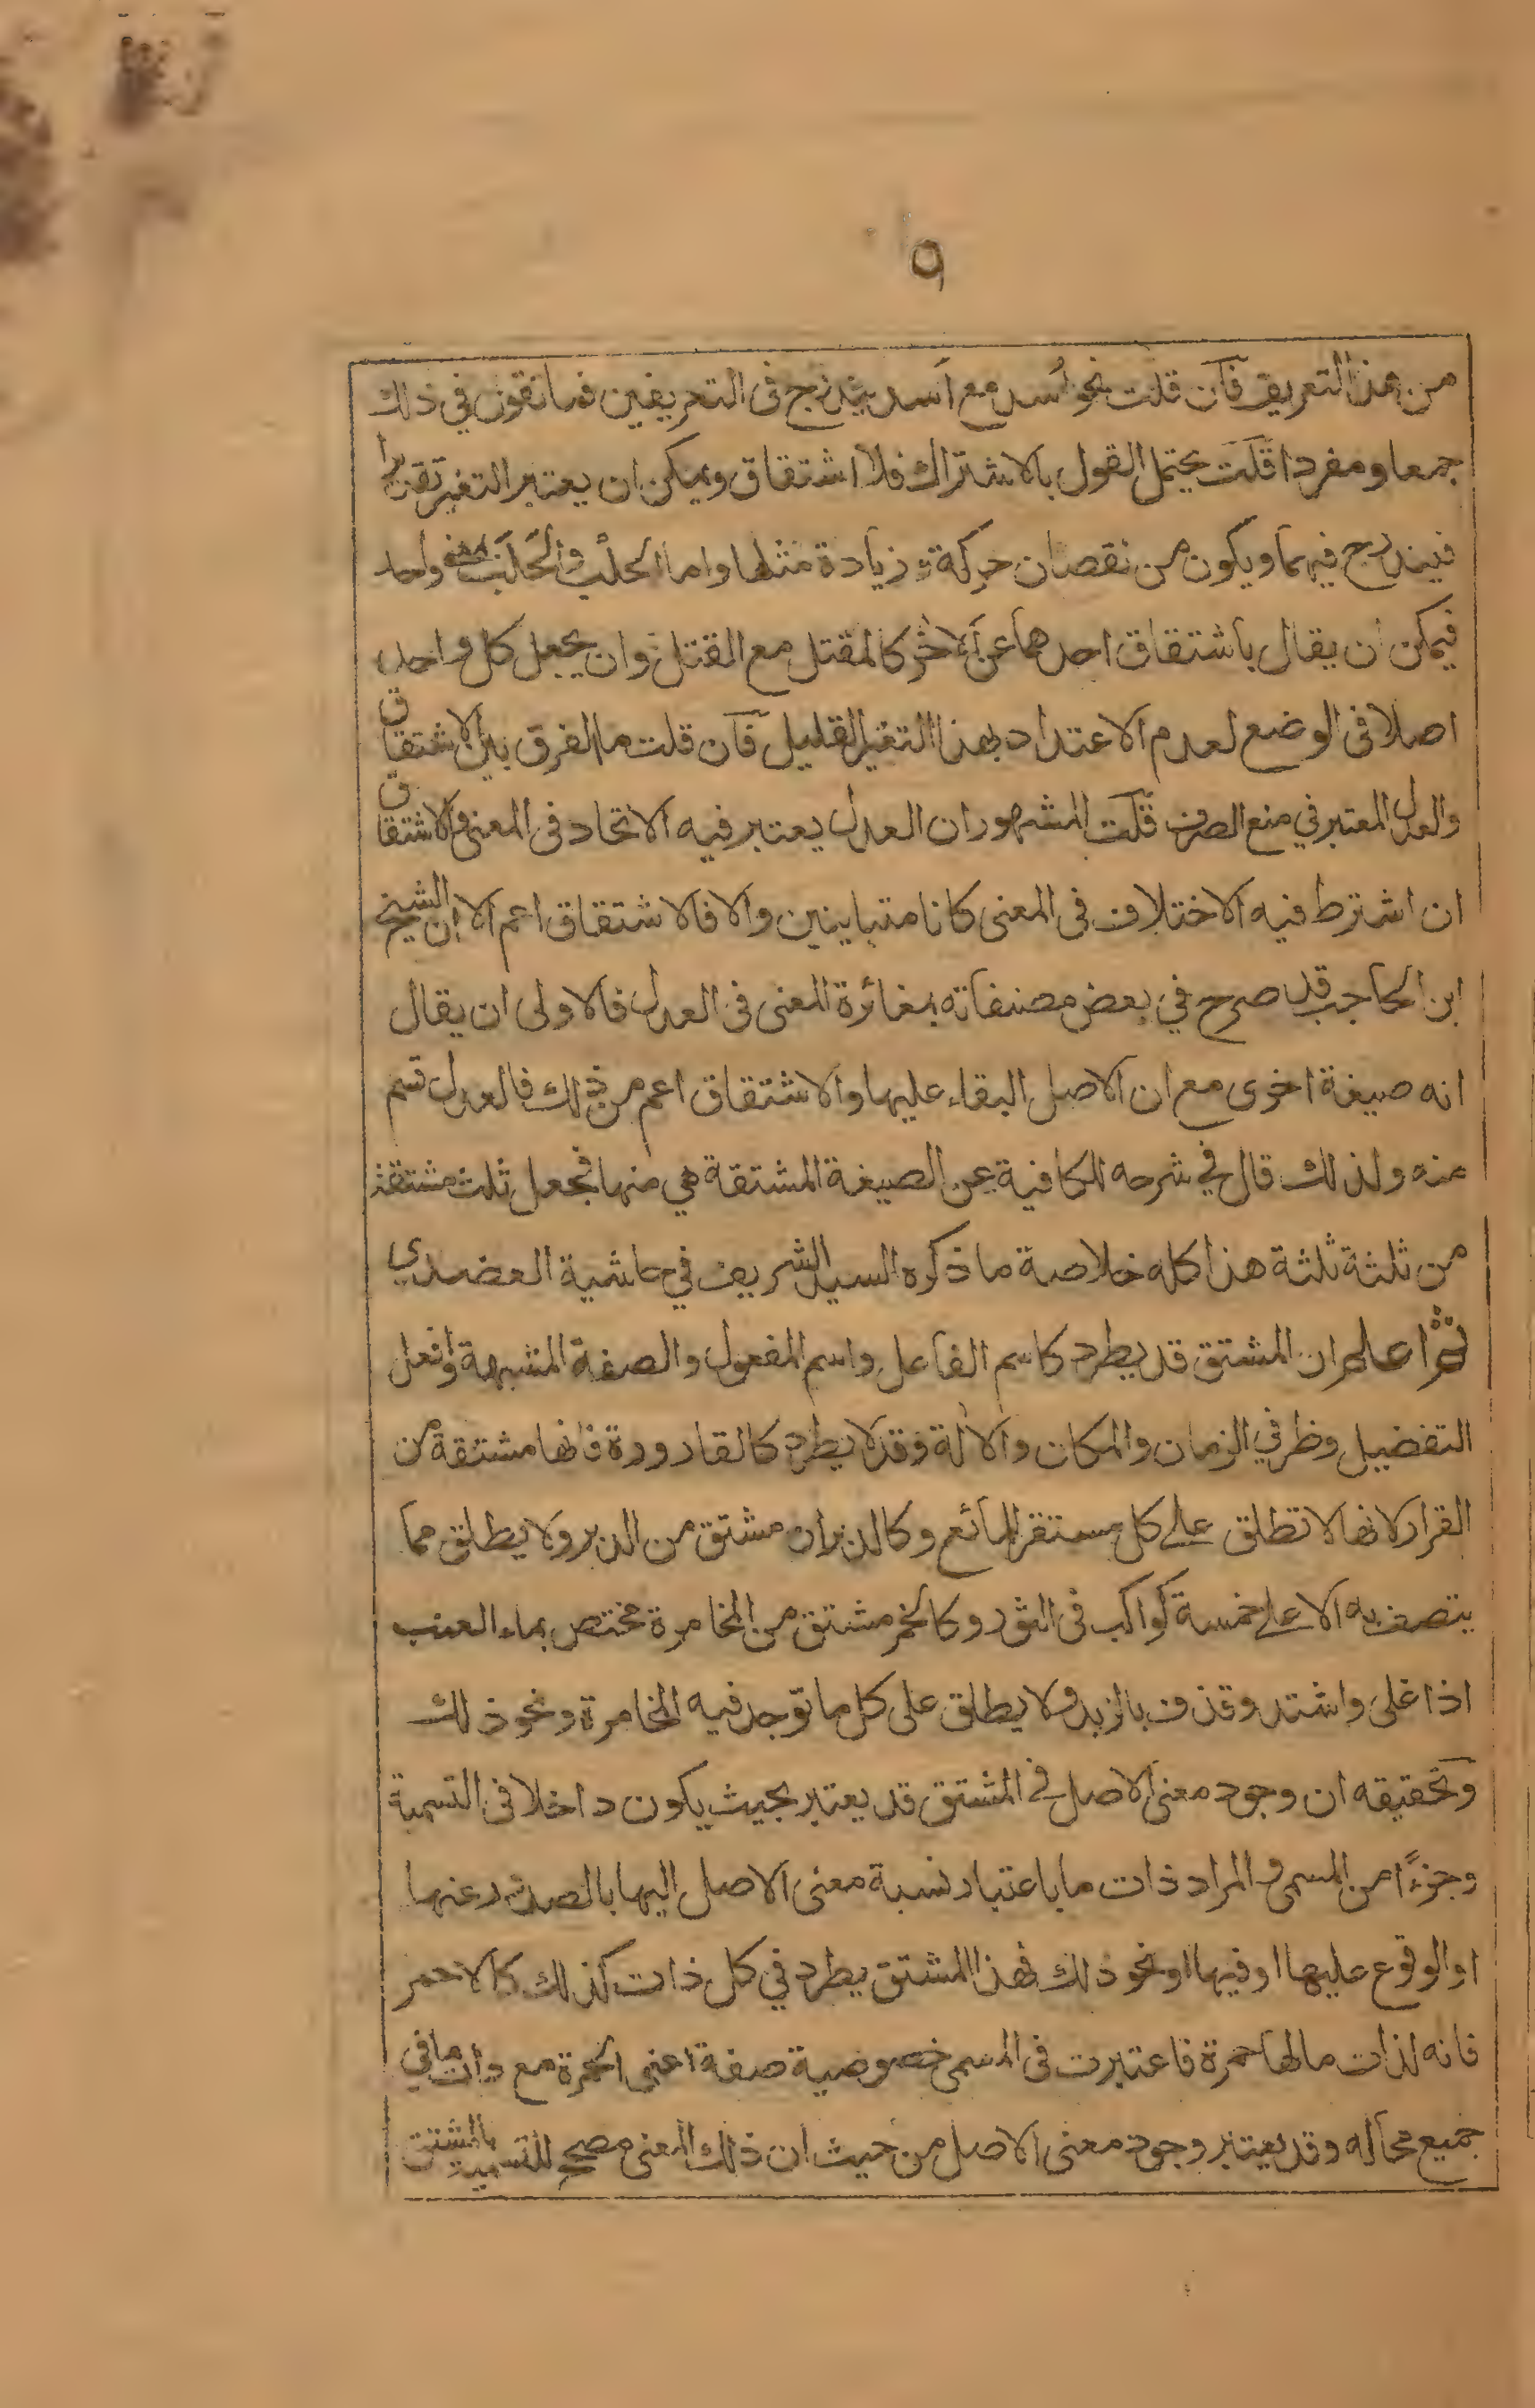 ٩
من هذا التعريف فان قلت نحو اُسد مع اَسد يندرج فى التعريفين فما تقول في ذلك
جمعا ومفردا قلت يحتمل القول بالاشتراك فلا اشتقاق ويمكن ان يعتبر التغير تقديرا
فيندرج فيهما ويكون من نقصان حركة و زيادة مثلها واما الحلْب والحلَب بمعنى واحد
فيمكن ان يقال باشتقاق احدهما عن الاخر كالمقتل مع القتل وان يجعل كل واحد
اصلا فى الوضع لعدم الاعتداد بهذا التغير القليل فان قلت ما الفرق بين الاشتقاق
والعدل المعتبر في منع الصرف قلت المشهور ان العدل يعتبر فيه الاتحاد فى المعنى والاشتقاق
ان اشترط فيه الاختلاف فى المعنى كانا متباينين والا فالاشتقاق اعم الا ان الشيخ
ابن الحاجب قد صرح في بعض مصنفاته بمغائرة المعنى فى العدل فالاولى ان يقال
انه صيغة اخرى مع ان الاصل البقاء عليها والاشتقاق اعم من ذلك فالعدل قسم
منه ولذلك قال في شرحه للكافية عن الصيغة المشتقة هي منها فجعل ثلث مشتقة
من ثلثة ثلثة هذا كله خلاصة ما ذكره السيد الشريف في حاشية العضدي
ثم اعلم ان المشتق قد يطرد كاسم الفاعل واسم المفعول والصفة المشبهة وافعل
التفضيل وظرفي الزمان والمكان والالة وقد لا يطرد كالقارورة فانها مشتقة من
القرار لانها لا تطلق على كل مستقر للمائع وكالدبران مشتق من الدبر ولا يطلق مما
يتصف به الا على خمسة كواكب فى الثور وكالخمر مشتق من المخامرة مختص بماء العنب
اذا غلى واشتد وقذف بالزبد ولا يطلق على كل ما توجد فيه المخامرة ونحو ذلك
وتحقيقه ان وجود معنى الاصل في المشتق قد يعتبر بحيث يكون داخلا فى التسمية
وجزءًا من المسمى والمراد ذات ما باعتبار نسبة معنى الاصل اليها بالصدور عنها
او الوقوع عليها او فيها او نحو ذلك فهذا المشتق يطرد في كل ذات كذلك كالاحمر
فانه لذات ما لها حمرة فاعتبرت فى المسمى خصوصية صفة اعنى الحمرة مع ذات ما في
جميع محاله وقد يعتبر وجود معنى الاصل من حيث ان ذلك المعنى مصحح للتسمية بالمشتق